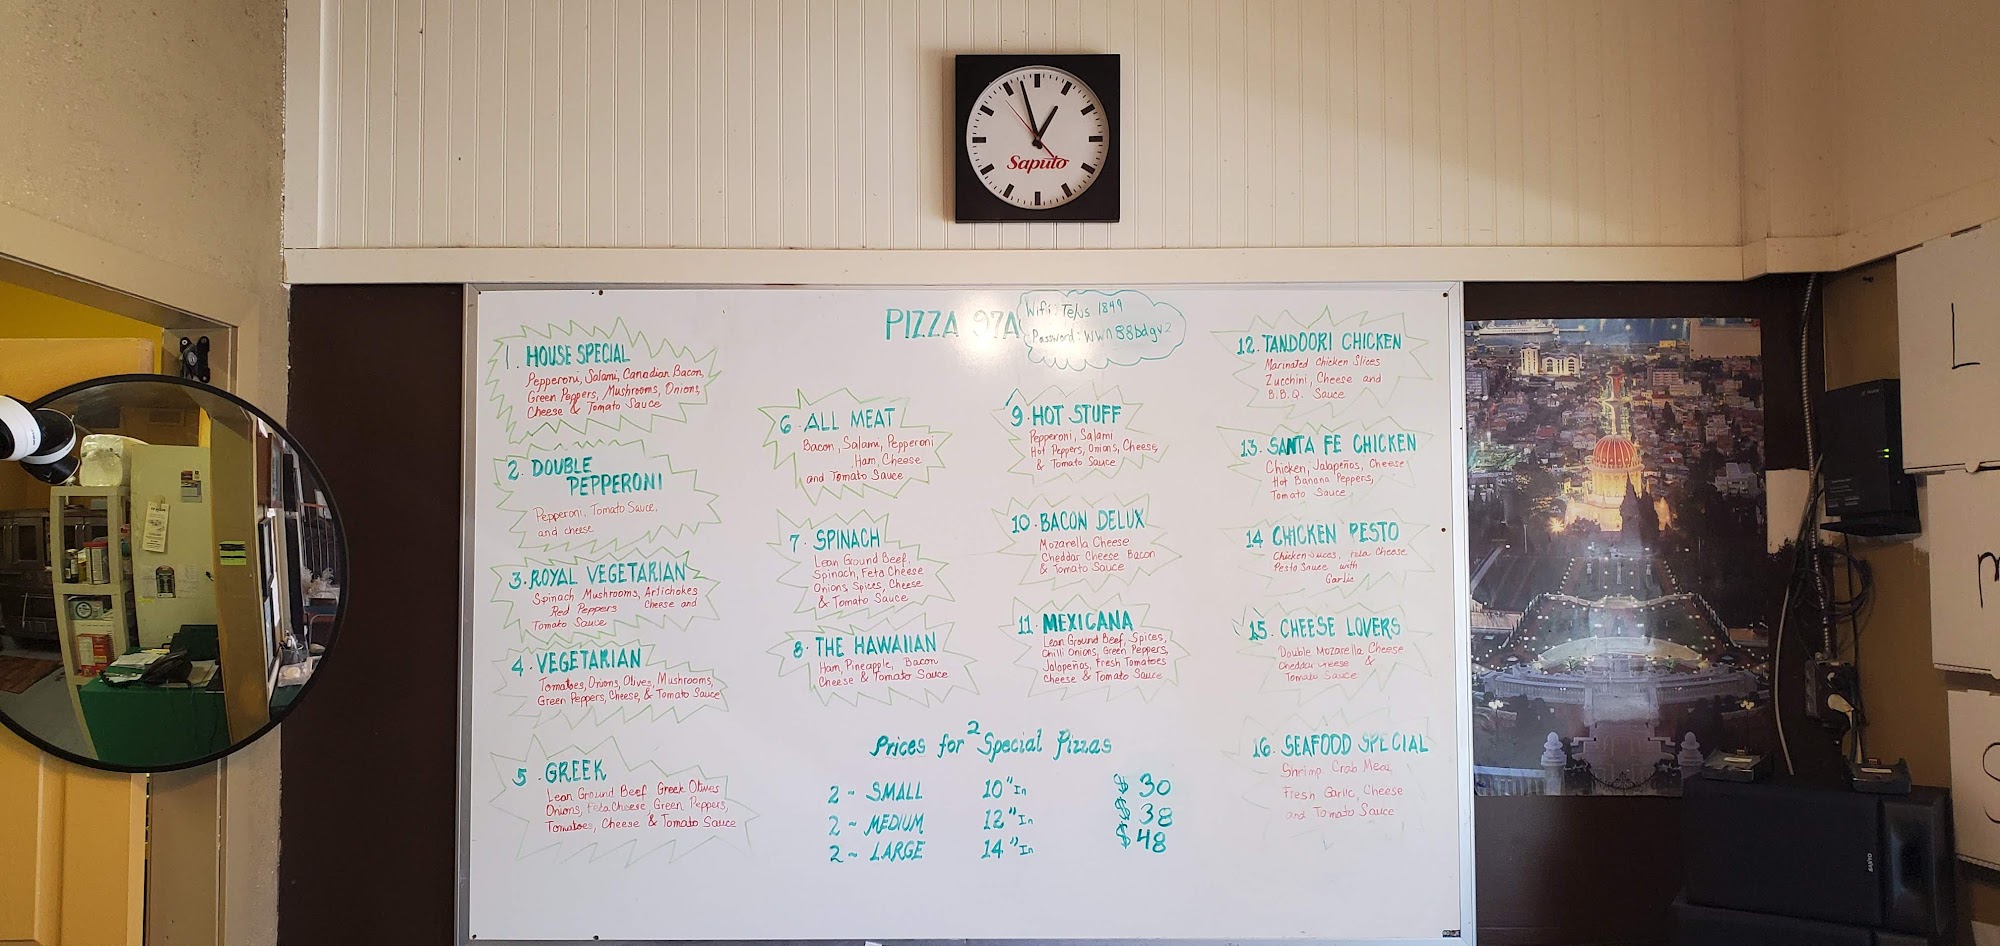 Saputo
PIZZA 97A
Wifi: Telus 1849
Password: wwn88bdgv2
1. HOUSE SPECIAL
Pepperoni, Salami, Canadian Bacon,
Green Peppers, Mushrooms, Onions,
Cheese & Tomato Sauce
2. DOUBLE
PEPPERONI
Pepperoni, Tomato Sauce,
and cheese
3. ROYAL VEGETARIAN
Spinach Mushrooms, Artichokes
Red Peppers Cheese and
Tomato Sauce
4. VEGETARIAN
Tomatoes, Onions, Olives, Mushrooms,
Green Peppers, Cheese, & Tomato Sauce
5. GREEK
Lean Ground Beef Greek Olives
Onions, Feta Cheese Green Peppers,
Tomatoes, Cheese & Tomato Sauce
6. ALL MEAT
Bacon, Salami, Pepperoni
Ham, Cheese
and Tomato Sauce
7. SPINACH
Lean Ground Beef,
Spinach, Feta Cheese
Onions, Spices, Cheese
& Tomato Sauce
8. THE HAWAIIAN
Ham, Pineapple, Bacon
Cheese & Tomato Sauce
9. HOT STUFF
Pepperoni, Salami
Hot Peppers, Onions, Cheese,
& Tomato Sauce
10. BACON DELUX
Mozarella Cheese
Cheddar Cheese Bacon
& Tomato Sauce
11. MEXICANA
Lean Ground Beef, Spices,
Chilli Onions, Green Peppers,
Jalopeños, Fresh Tomatoes
Cheese & Tomato Sauce
12. TANDOORI CHICKEN
Marinated Chicken Slices
Zucchini, Cheese and
B.B.Q. Sauce
13. SANTA FE CHICKEN
Chicken, Jalapeños, Cheese
Hot Banana Peppers,
Tomato Sauce
14 CHICKEN PESTO
Chicken Slices, Feta Cheese
Pesto Sauce with
Garlic
15. CHEESE LOVERS
Double Mozarella Cheese
Cheddar Cheese &
Tomato Sauce
16. SEAFOOD SPECIAL
Shrimp Crab Meat,
Fresh Garlic, Cheese
and Tomato Sauce
Prices for 2 Special Pizzas
2 - SMALL 10" In $30
2 - MEDIUM 12" In $38
2 - LARGE 14" In $48
L
SANYO